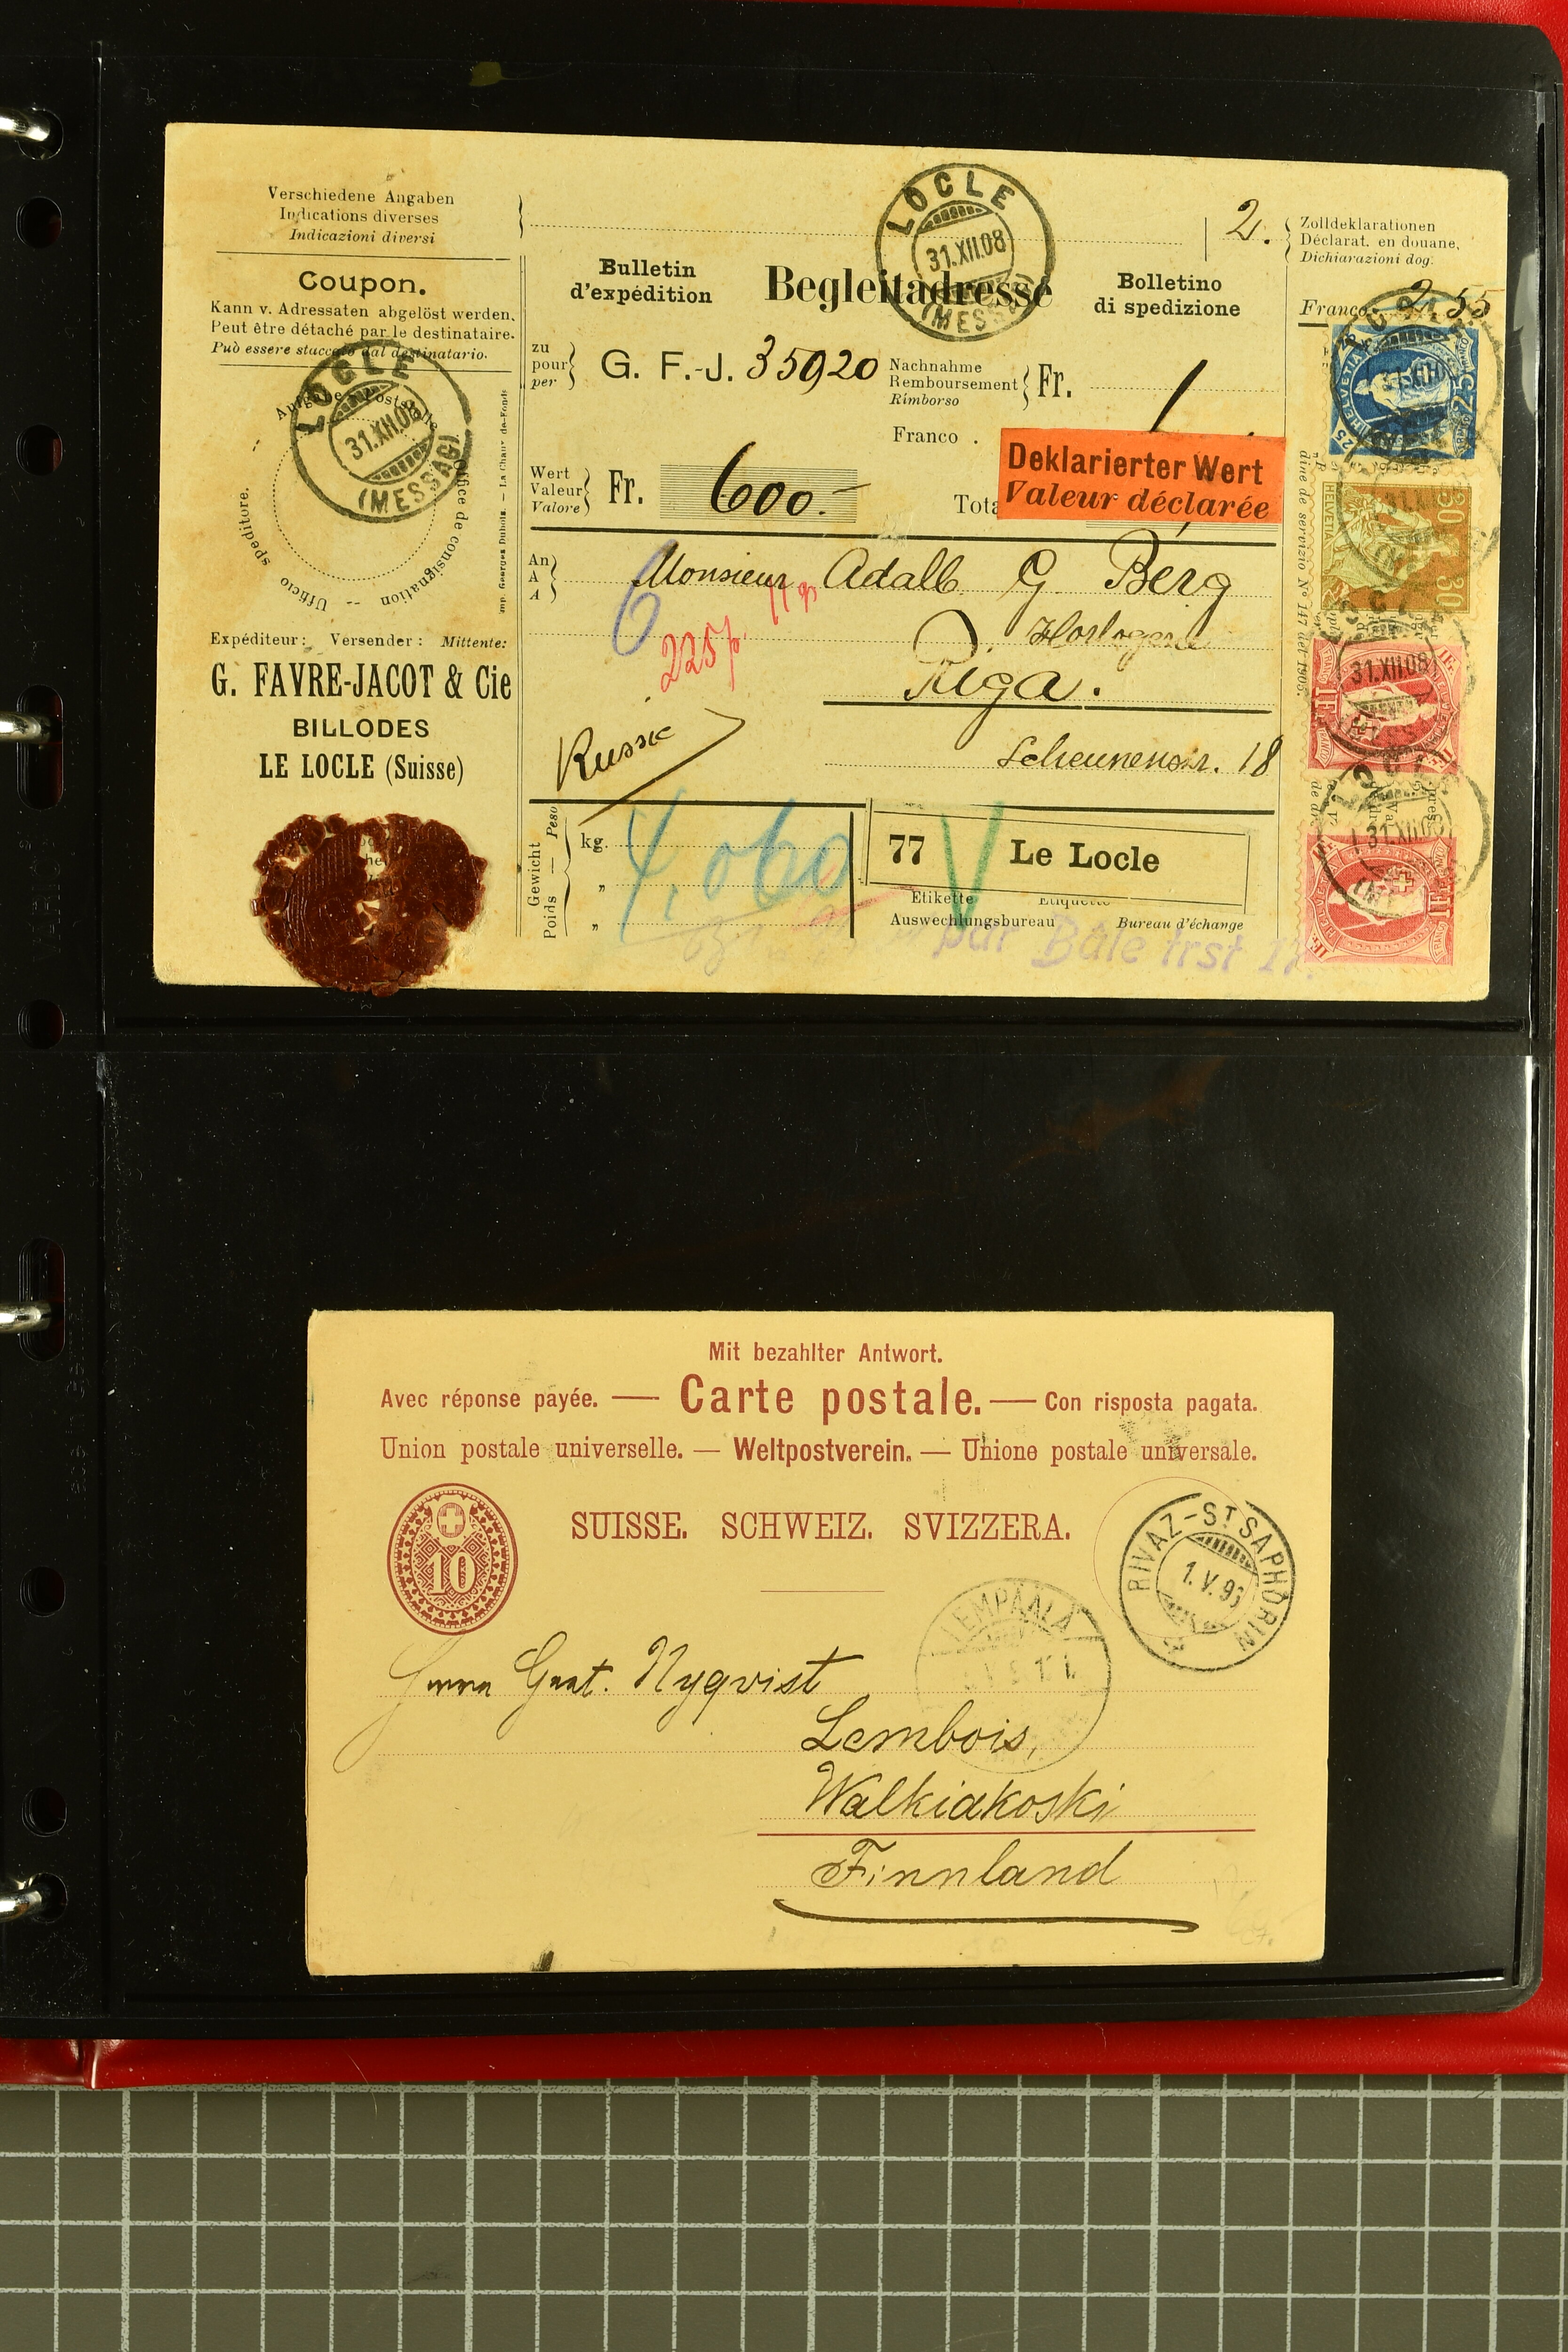 Verschiedene Angaben
Indications diverses
Indicazioni diversi
Coupon.
Kann v. Adressaten abgelöst werden.
Peut être détaché par le destinataire.
Può essere staccato dal destinatario.
LOCLE
31.XII.08
(MESSAG)
Office de consignation
Ufficio speditore.
Imp. Georges Dubois. — La Chaux-de-Fonds
Expéditeur: Versender: Mittente:
G. FAVRE-JACOT & Cie
BILLODES
LE LOCLE (Suisse)
LOCLE
31.XII.08
(MESSAG)
2.
Zolldeklarationen
Déclarat. en douane,
Dichiarazioni dog.
Bulletin
d'expédition
Begleitadresse
Bolletino
di spedizione
Franco: 2,55
zu
pour
per
G. F.-J. 35920
Nachnahme
Remboursement
Rimborso
Fr.
Franco .
Wert
Valeur
Valore
Fr. 600.-
Deklarierter Wert
Valeur déclarée
An
A
A
Monsieur Adalb. G. Berg
Horlogerie
Riga.
Scheunenstr. 18
Russie
6
225
Gewicht
Poids — Peso
kg.
4,060
77 Le Locle
Etikette Etiquette
Auswechlungsbureau Bureau d'échange
par Bâle trst
HELVETIA
25
HELVETIA
50
31.XII.08
1 F
31.XII.08
1 F
Mit bezahlter Antwort.
Avec réponse payée. — Carte postale. — Con risposta pagata.
Union postale universelle. — Weltpostverein. — Unione postale universale.
10
SUISSE. SCHWEIZ. SVIZZERA.
RIVAZ-ST SAPHORIN
1.V.93
LEMPÄÄLÄ
Herrn Gust. Nyqvist
Lembois,
Walkiakoski
Finnland